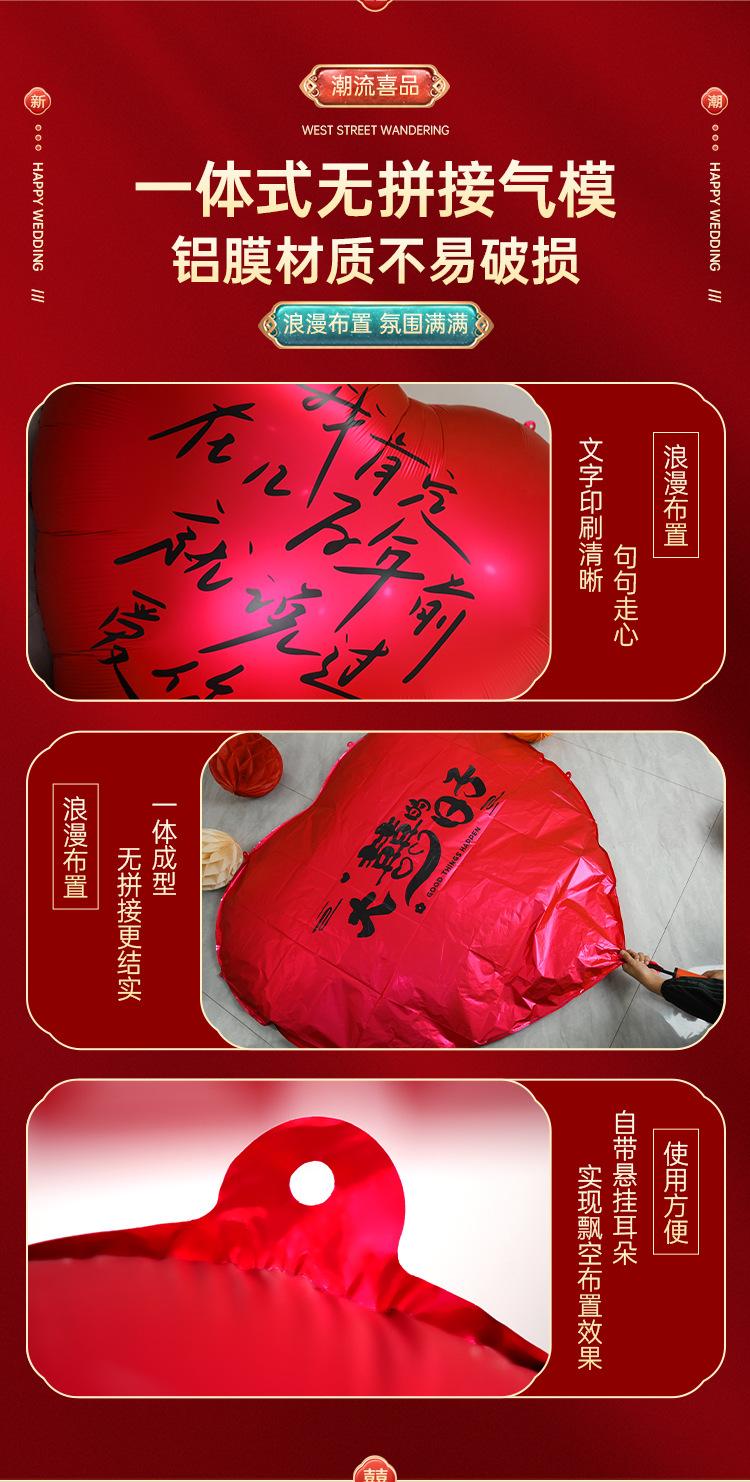 潮流喜品
WEST STREET WANDERING
新
HAPPY WEDDING
潮
HAPPY WEDDING
一体式无拼接气模
铝膜材质不易破损
浪漫布置 氛围满满
我肯定
在几百年前
就说过
爱你
浪漫布置
句句走心
文字印刷清晰
浪漫布置
一体成型
无拼接更结实
大囍的日子
GOOD THINGS HAPPEN
使用方便
自带悬挂耳朵
实现飘空布置效果
囍